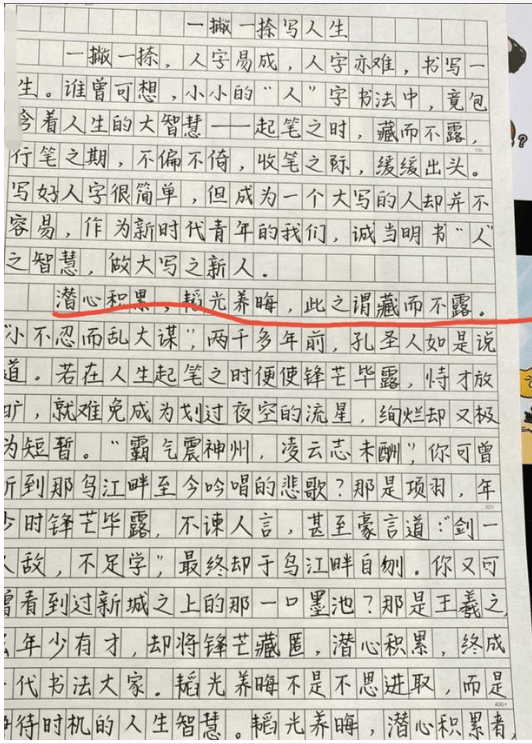 一撇一捺写人生
一撇一捺，人字易成，人字亦难，书写一
生。谁曾可想，小小的“人”字书法中，竟包
含着人生的大智慧——起笔之时，藏而不露，
行笔之期，不偏不倚，收笔之际，缓缓出头。
写好人字很简单，但成为一个大写的人却并不
容易，作为新时代青年的我们，诚当明书“人”
之智慧，做大写之新人．
潜心积累，韬光养晦，此之谓藏而不露。
“小不忍而乱大谋”，两千多年前，孔圣人如是说
道。若在人生起笔之时便使锋芒毕露，恃才放
旷，就难免成为划过夜空的流星，绚烂却又极
为短暂。“霸气震神州，凌云志未酬”，你可曾
听到那乌江畔至今吟唱的悲歌？那是项羽，年
少时锋芒毕露，不谏人言，甚至豪言道：“剑一
人敌，不足学”，最终却于乌江畔自刎。你又可
曾看到过新城之上的那一口墨池？那是王羲之，
年少有才，却将锋芒藏匿，潜心积累，终成
一代书法大家．韬光养晦不是不思进取，而是
待时机的人生智慧。韬光养晦，潜心积累者，